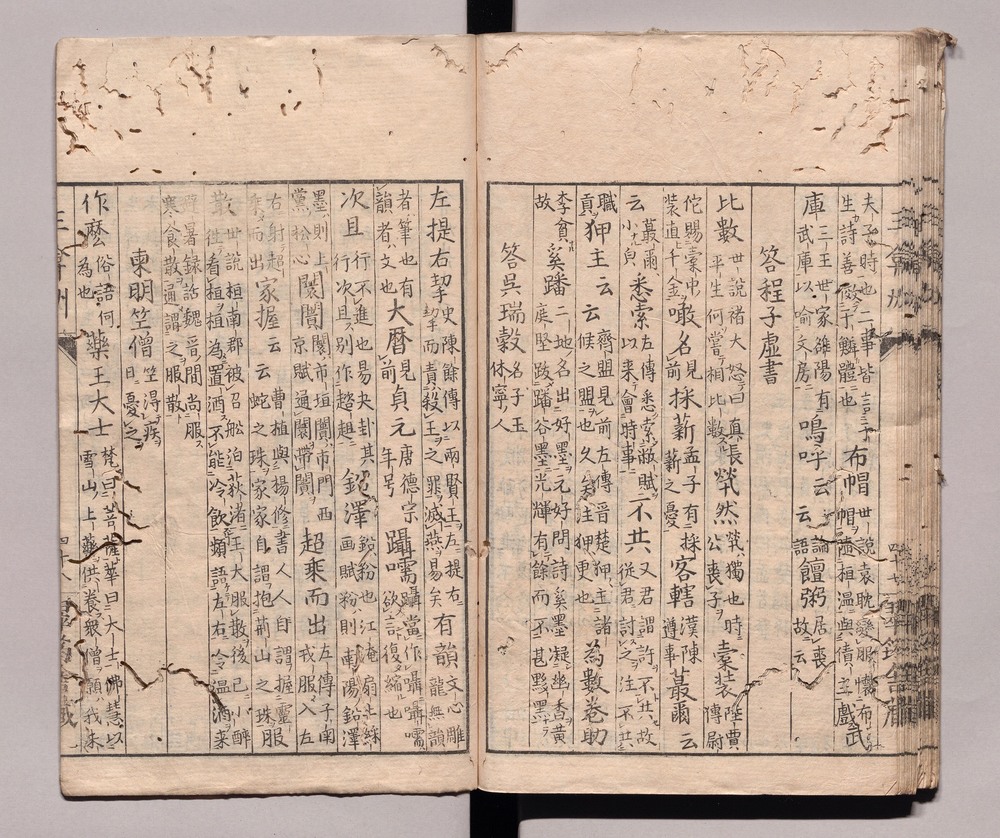 夫子時也二事皆言子布帽世說袁耽變服懷布
生詩善戲乎
庫武庫以喻文房
三王世家雒陽有鳴呼云云論語饘粥居喪故云
答程子虛書
比數世說褚大怒曰真長平生何嘗相比數
煢然煢獨也時公喪子
橐裝陸賈傳尉
佗賜橐中裝直千金
噉名見前
採薪孟子有採薪之憂
客轄漢陳遵事
蕞爾云
云蕞爾小皃
悉索左傳悉索敝賦以來會時事
不共又君謂許不共故從君討之注不共
職
狎王云云齊盟見前左傳晉楚狎主諸侯之盟也久矣注狎更也
為數卷助
故
奚蹯二地名出好墨元好問詩奚墨凝幽香黃庭堅跋蹯谷墨光輝有餘而不甚黟黑
答吳瑞穀名子玉休寧人
左提右挈史陳餘傳以兩賢王左提右挈而責殺王之罪滅燕易矣
有韻文心雕龍無韻
者筆也有韻者文也
大曆見前
貞元唐德宗年号
躡嚅躡當作囁囁嚅欲言復縮也
次且行不進也易夬卦其行次且別作趑趄
鉛澤鉛粉也江淹扇上綵画賦粉則南陽鉛澤
墨則上黨松心
闤闠闤市垣闠市門西京賦通闤帶闠
超乘而出左傳子南戎服入左
右射超乘而出
家握云云曹植與楊修書人人自謂握靈蛇之珠家家自謂抱荊山之
散世說桓南郡被召舩泊荻渚王大服散後已小醉往看桓桓為置酒不能冷飲頻語左右令溫酒來
避暑錄話魏晉間尚服寒食散通謂之服散
東明竺僧竺淂疾曰憂之
作麼俗語何為也
藥王大士梵曰菩薩華曰大士佛慧以雪山上藥供養衆僧願我未